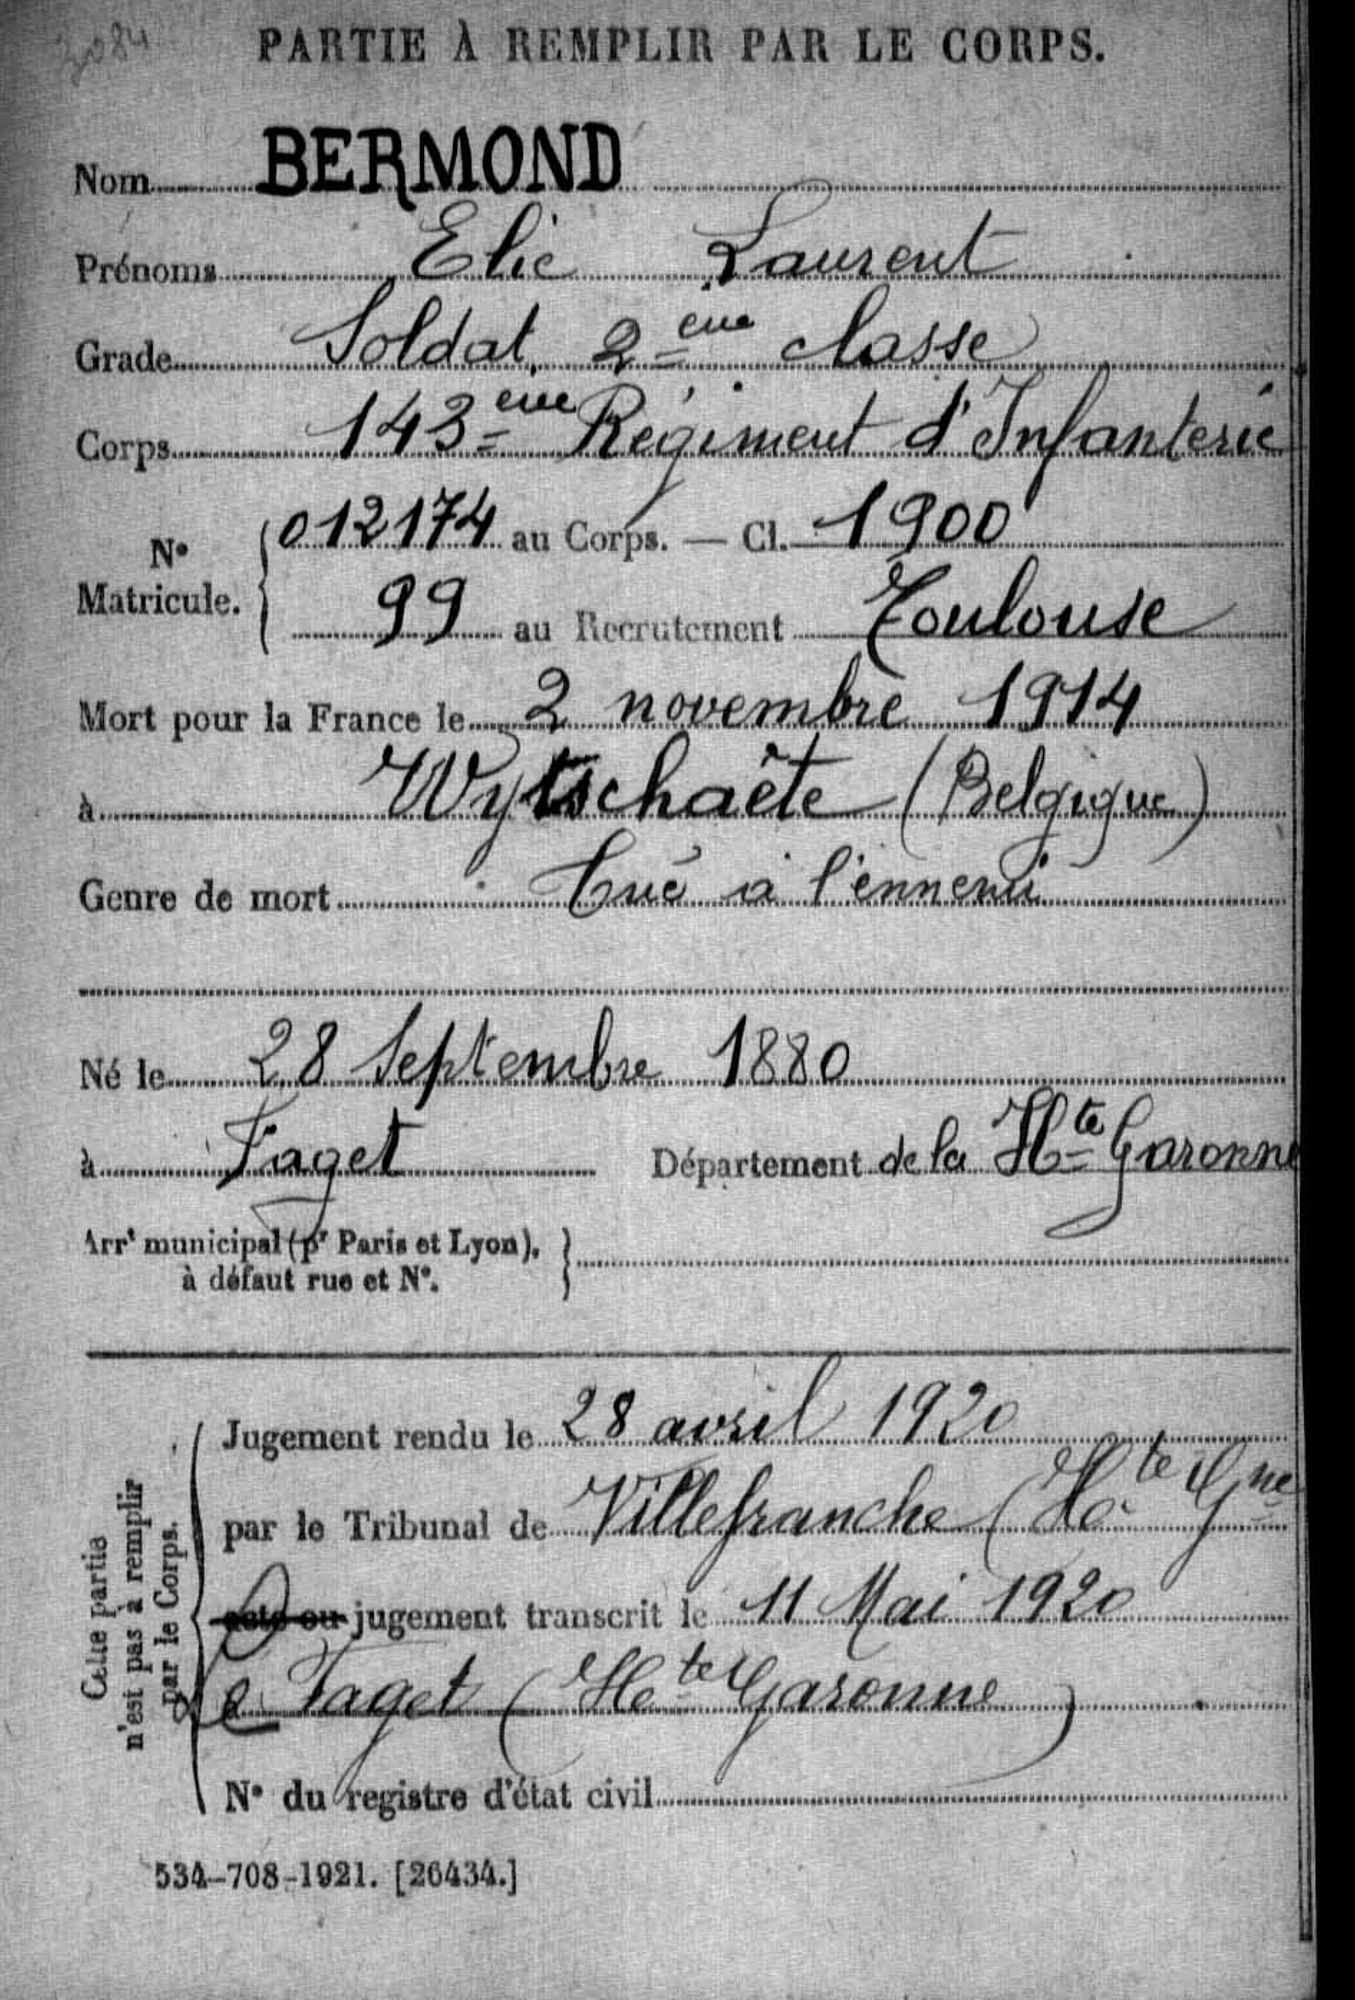 PARTIE À REMPLIR PAR LE CORPS.
Nom BERMOND
Prénoms Elie Laurent
Grade Soldat 2ème classe
Corps 143ème Régiment d'Infanterie
N° Matricule. 012174 au Corps. — Cl. 1900
99 au Recrutement Toulouse
Mort pour la France le 2 novembre 1914
à Wytschaëte (Belgique)
Genre de mort Tué à l'ennemi
Né le 28 Septembre 1880
à Faget Département de la Hte Garonne
Arrt municipal (pr Paris et Lyon),
à défaut rue et N°.
Cette partie
n'est pas à remplir
par le Corps.
Jugement rendu le 28 avril 1920
par le Tribunal de Villefranche (Hte Gne
acte ou jugement transcrit le 11 Mai 1920
Le Faget (Hte Garonne)
N° du registre d'état civil
534-708-1921. [26434.]